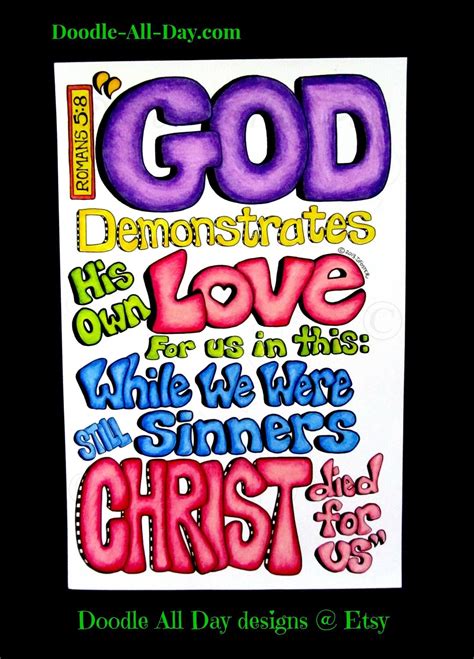 Doodle-All-Day.com
ROMANS 5:8
"GOD
Demonstrates
His Own Love
For us in this:
While We Were
STILL Sinners
CHRIST died for us"
Doodle All Day designs @ Etsy